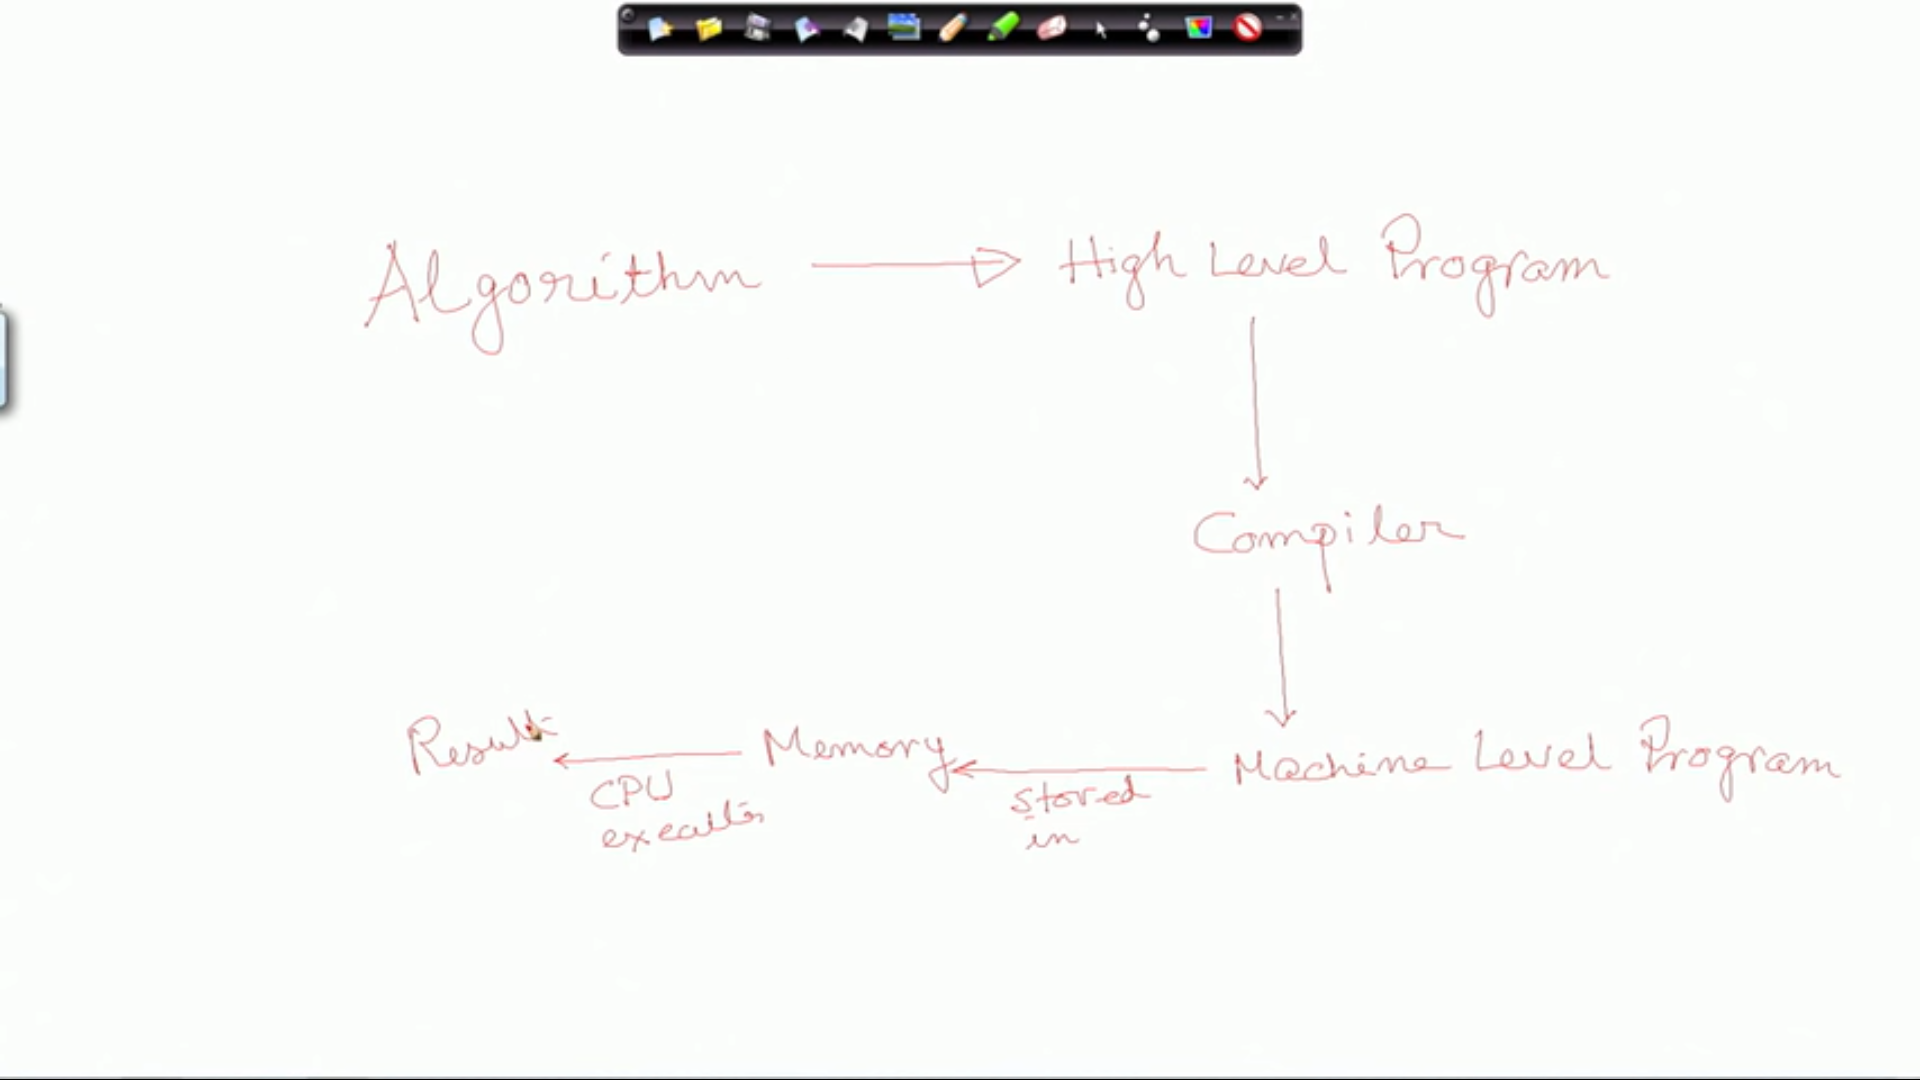 Algorithm
High Level Program
Compiler
Machine Level Program
stored
in
Memory
CPU
executes
Result